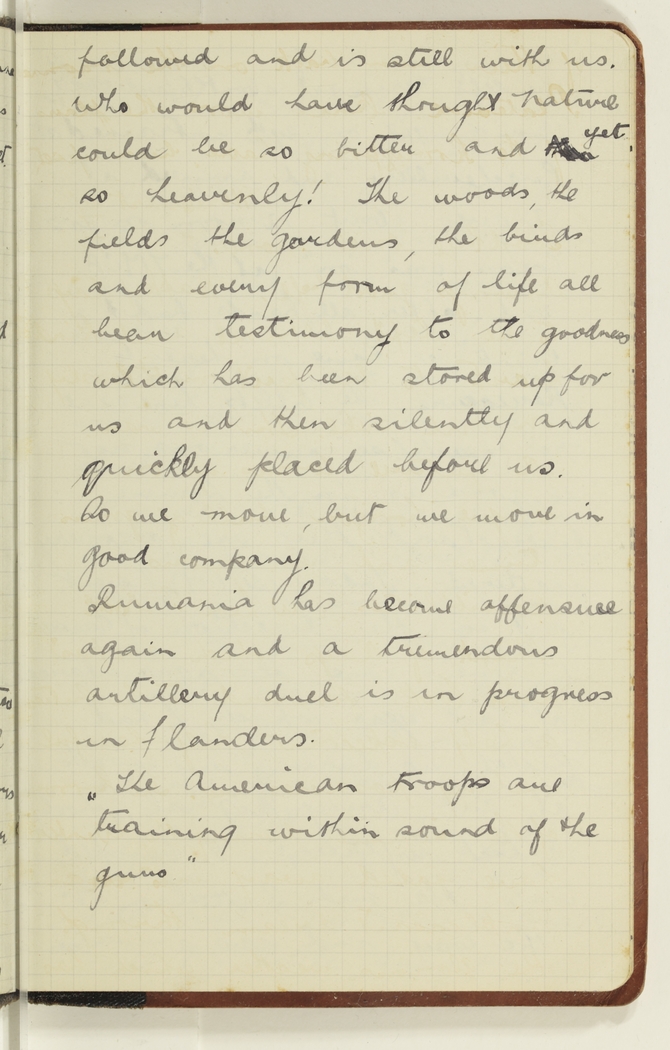 followed and is still with us.
Who would have thought Nature
could be so bitter and yet
so heavenly! The woods, the
fields the gardens, the birds
and every form of life all
bear testimony to the goodness
which has been stored up for
us and then silently and
quickly placed before us.
So we move, but we move in
good company.
Rumania has become offensive
again and a tremendous
artillery duel is in progress
in flanders.
„The American troops are
training within sound of the
guns"